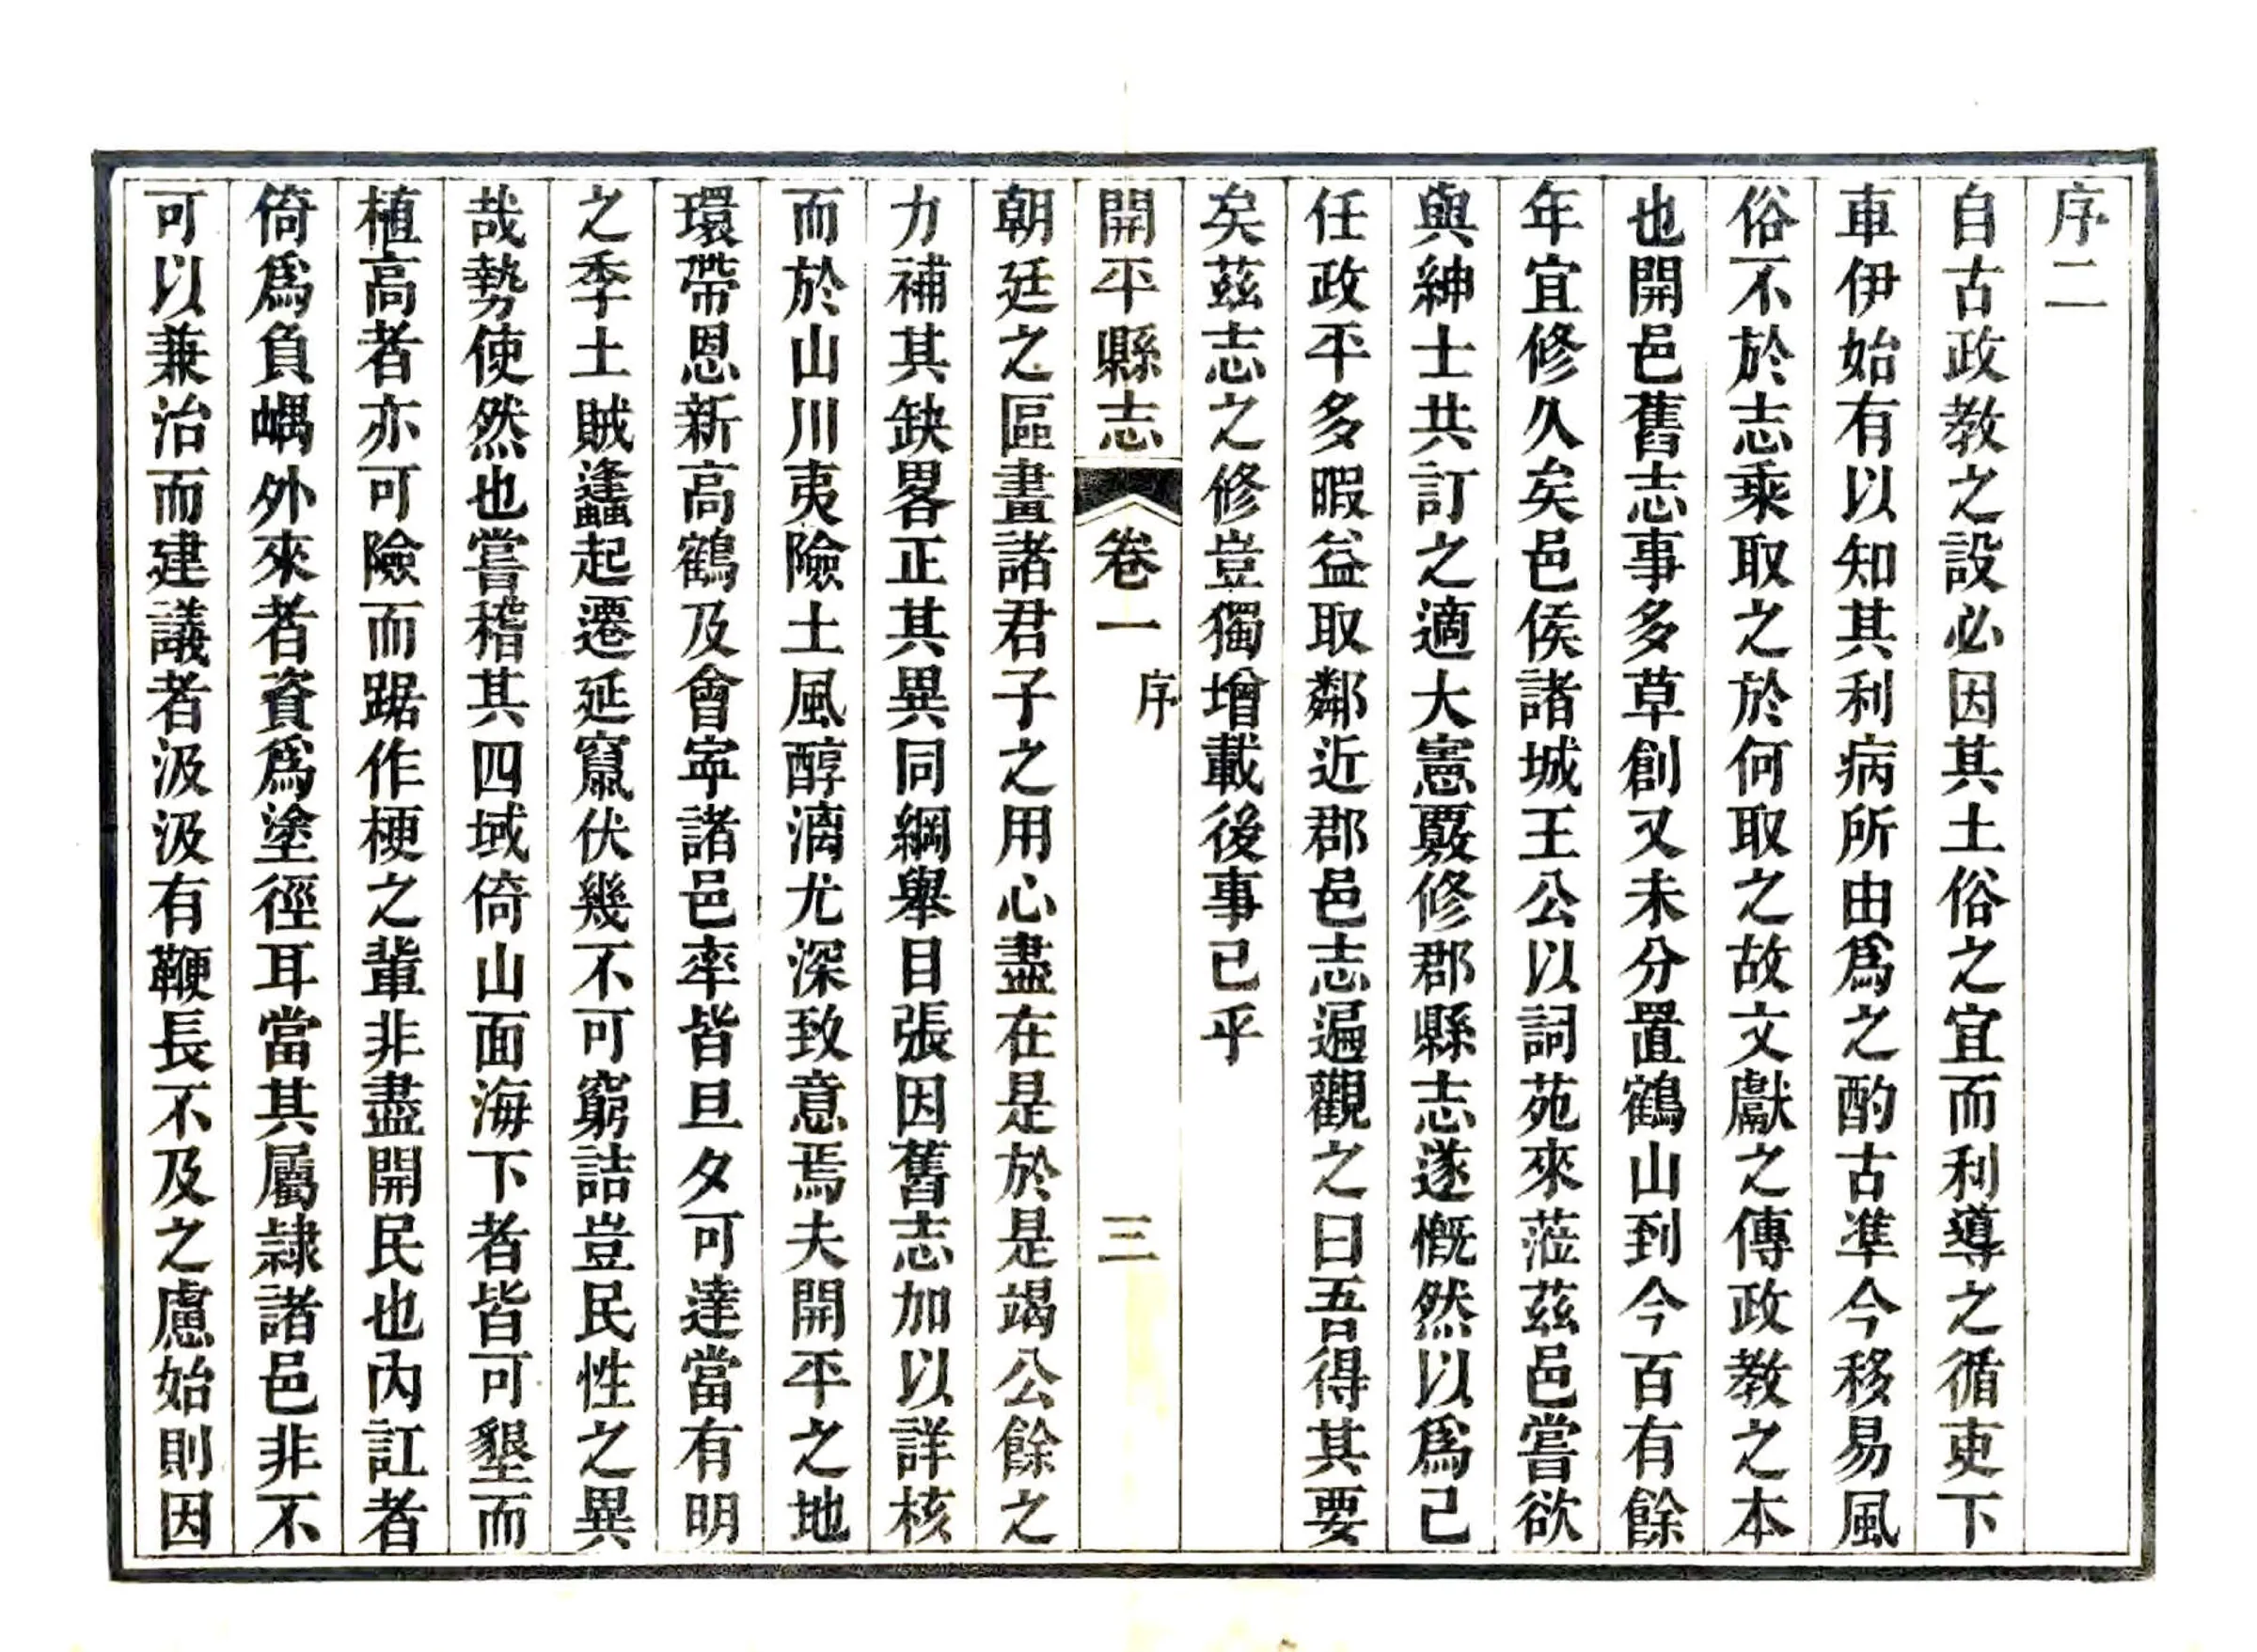 序二
自古政教之設必因其土俗之宜而利導之循吏下
車伊始有以知其利病所由爲之酌古準今移易風
俗不於志乘取之於何取之故文獻之傳政教之本
也開邑舊志事多草創又未分置鶴山到今百有餘
年宜修久矣邑侯諸城王公以詞苑來蒞茲邑嘗欲
與紳士共訂之適大憲覈修郡縣志遂慨然以爲己
任政平多暇益取鄰近郡邑志遍觀之曰吾得其要
矣茲志之修豈獨增載後事已乎
開平縣志 卷一 序 三
朝廷之區畫諸君子之用心盡在是於是竭公餘之
力補其缺畧正其異同綱舉目張因舊志加以詳核
而於山川夷險土風醇漓尤深致意焉夫開平之地
環帶恩新高鶴及會寧諸邑率皆旦夕可達當有明
之季土賊蠭起遷延竄伏幾不可窮詰豈民性之異
哉勢使然也嘗稽其四域倚山面海下者皆可墾而
植高者亦可險而踞作梗之輩非盡開民也內訌者
倚爲負嵎外來者資爲塗徑耳當其屬隸諸邑非不
可以兼治而建議者汲汲有鞭長不及之慮始則因